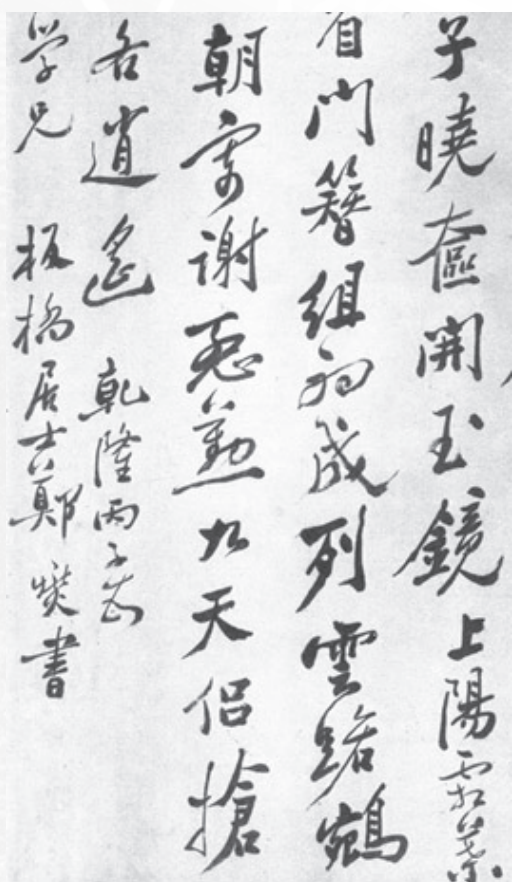 子曉奩開玉鏡上陽霜葉
省門簪組初成列雲路鵷
朝寄謝慇懃九天侶搶
各逍遙 乾隆丙子
学兄 板橋居士鄭燮書